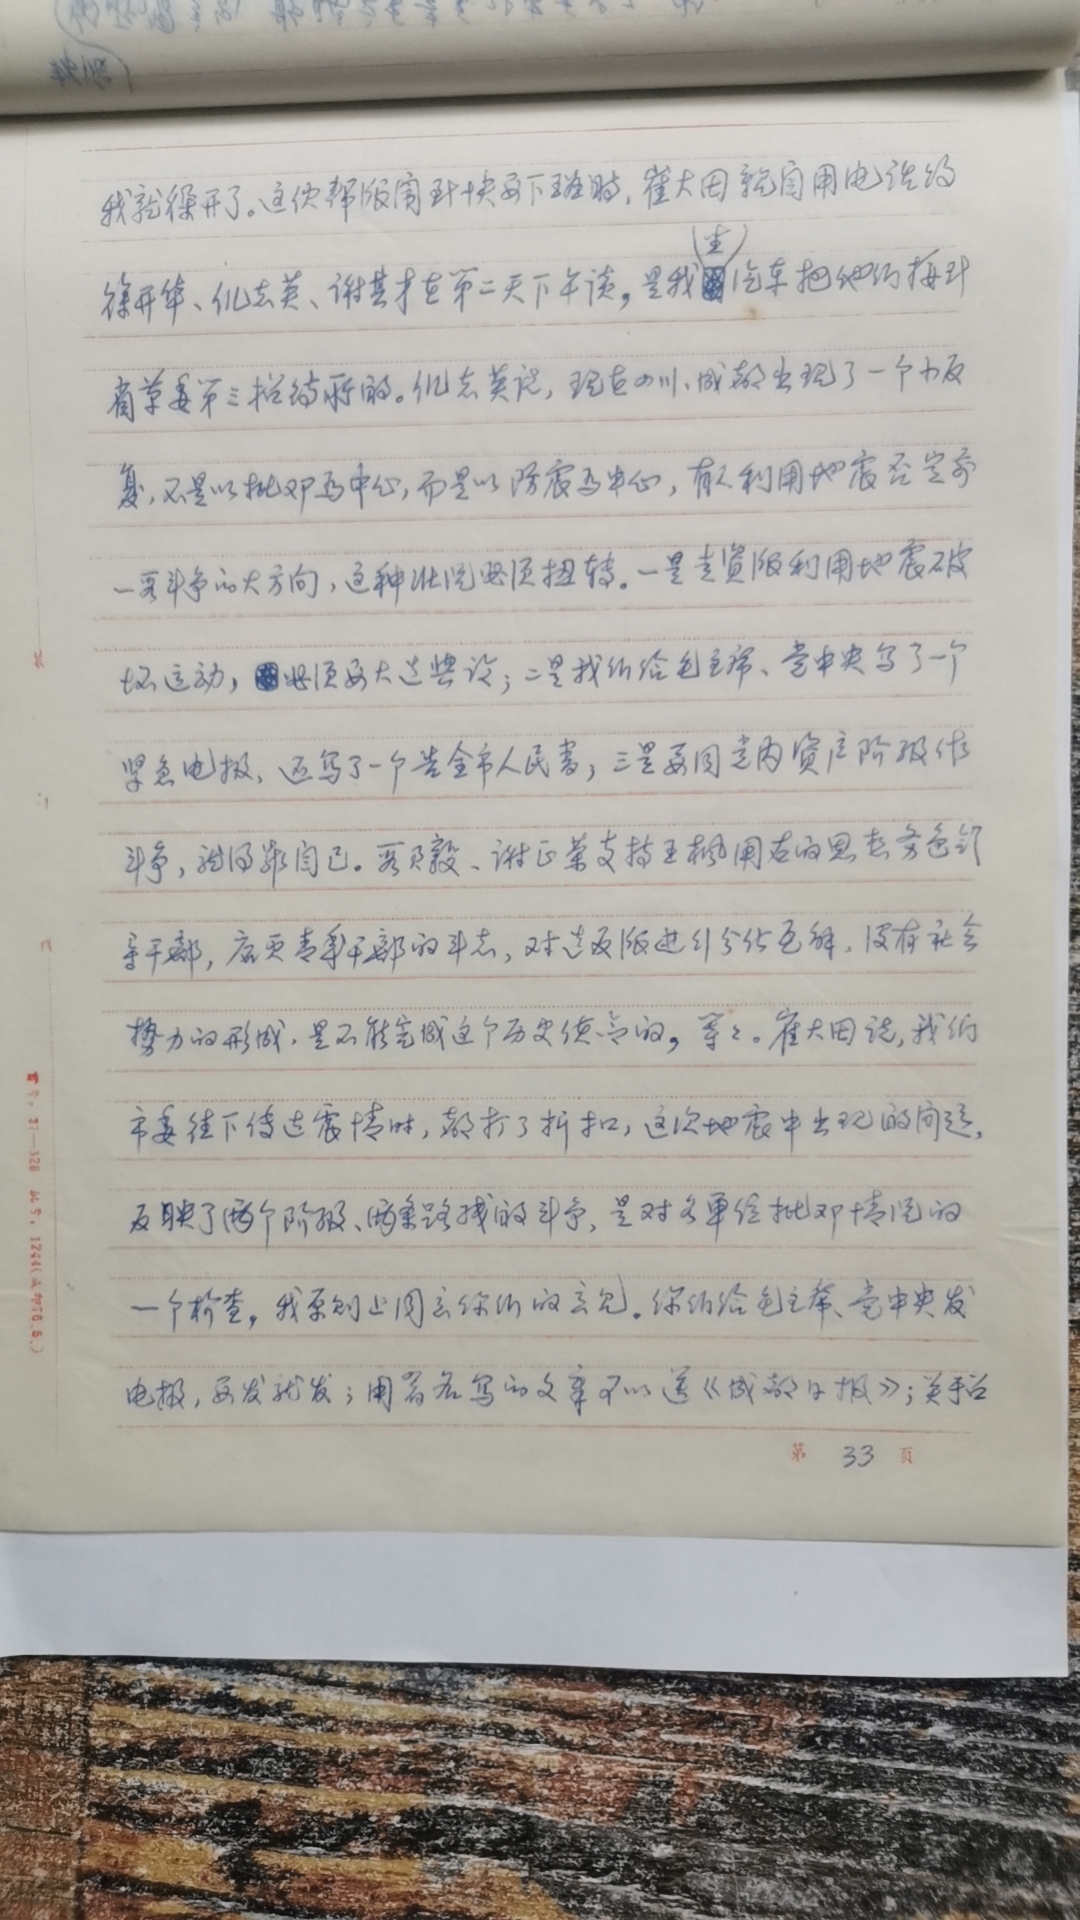 我就缲开了。这伙帮派闹到快要下班时，崔大田亲自用电话约
徐开华、仉志英、谢其才在第二天下午谈，是我（坐）汽车把他们接到
省革委第三招待所的。仉志英说，现在四川、成都出现了一个小反
复，不是以批邓为中心，而是以防震为中心，有人利用地震否定前
一段斗争的大方向，这种状况必须扭转。一是走资派利用地震破
坏运动，必须要大造舆论；二是我们给毛主席、党中央写了一个
紧急电报，还写了一个告全市人民书；三是要同党内资产阶级作
斗争，就得靠自己。 、谢正荣支持王枫用右的思想
导干部， 青年干部的斗志，对造反派进行分化瓦解，没有社会
势力的形成，是不能完成这个历史使命的，等々。崔大田说，我们
市委往下传达震情时，都打了折扣，这次地震中出现的问题，
反映了两个阶级、两条路线的斗争，是对各单位批邓情况的
一个检查，我原则上同意你们的意见。你们给毛主席、党中央发
电报，要发就发；用署名写的文章可以送《成都日报》；关于
第 33 页